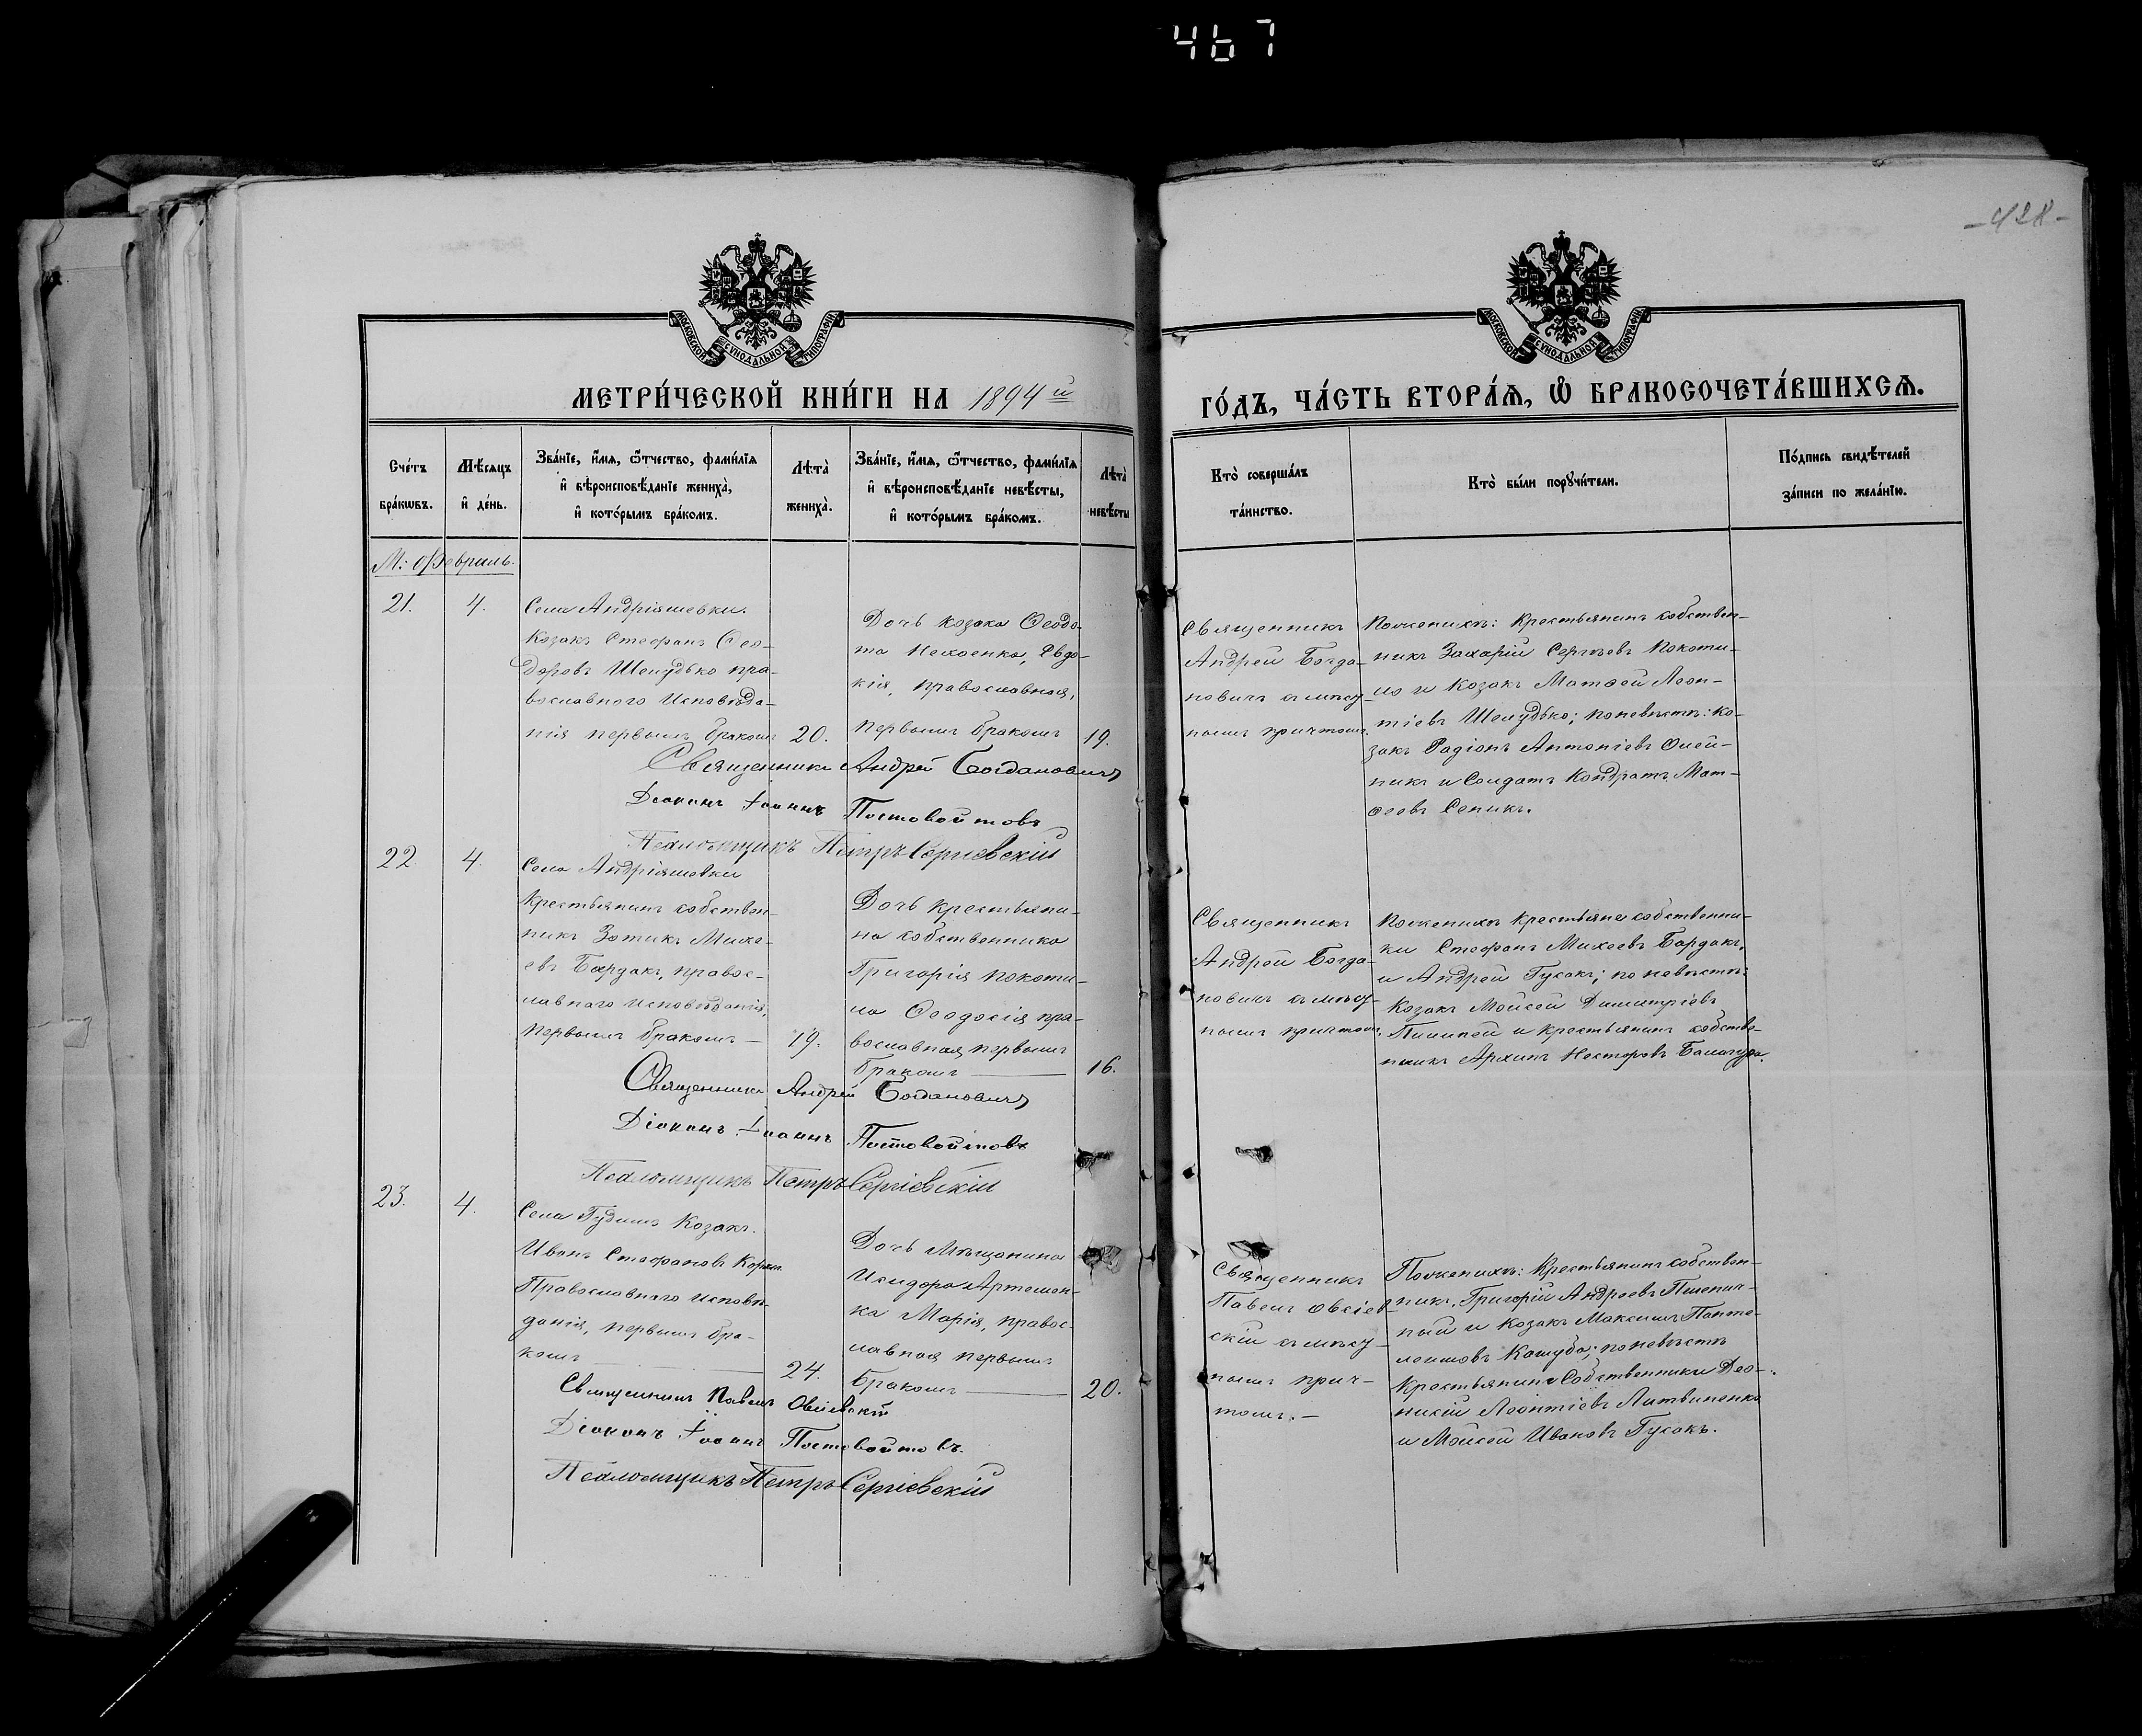 467
-428-
МОСКОВСКОЙ СѴНОДАЛЬНОЙ ТИПОГРАФІИ
МОСКОВСКОЙ СѴНОДАЛЬНОЙ ТИПОГРАФІИ
МЕТРИ́ЧЕСКОЙ КНИ́ГИ НА 1894й
ГО́ДЪ, ЧА́СТЬ ВТОРА́Я, Ѽ БРАКОСОЧЕТА́ВШИХСѦ.
Сче́тъ
бра́кѡвъ.
Мѣ́сяцъ
и҆ де́нь.
Зва́нїе, и҆́мѧ, ѻ҆́тчество, фами́лїѧ
и҆ вѣроисповѣ́данїе жениха̀,
и҆ кото́рымъ бра́комъ.
Лѣ́та̀
жениха̀.
Зва́нїе, и҆́мѧ, ѻ҆́тчество, фами́лїѧ
и҆ вѣроисповѣ́данїе невѣ́сты,
и҆ кото́рымъ бра́комъ.
Лѣ́та̀
невѣ́сты
Кто̀ соверша́лъ
та́инство.
Кто̀ бы́ли порꙋчи́тели.
По́дпись свидѣ́телей
за́писи по жела́нїю.
М: Февраль.
21.
4.
Села Андріяшевки.
Козакъ Стефанъ Ѳео-
доровъ Шелудько пра-
вославнаго Исповѣда-
нія первымъ бракомъ
20.
Дочь козака Ѳеодо-
та Нехоенка, Евдо-
кія, православная,
первымъ бракомъ
19.
Священникъ
Андрей Богда-
новичъ съ мѣст-
нымъ причтомъ.
По женихѣ: Крестьянинъ собствен-
никъ Захарій Сергѣевъ Покоти-
ло и Козакъ Матѳей Леон-
тіевъ Шелудько; по невѣстѣ: Ко-
закъ Радіонъ Антоніевъ Олей-
никъ и Солдатъ Кондратъ Мат-
ѳеевъ Сепикъ.
Священникъ Андрей Богдановичъ
Діаконъ Іоаннъ Постовойтовъ
Псаломщикъ Петръ Сергіевскій
22
4.
Села Андріяшевки
Крестьянинъ собствен-
никъ Зотикъ Михе-
евъ Бардакъ, правос-
лавнаго Исповѣданія,
первымъ бракомъ —
19.
Дочь крестьяни-
на собственника
Григорія Покоти-
ла Ѳеодосія пра-
вославная, первымъ
бракомъ —
16.
Священникъ
Андрей Богда-
новичъ съ мѣст-
нымъ причтомъ.
По женихѣ Крестьяне собственни-
ки Стефанъ Михеевъ Бардакъ,
и Андрей Гусакъ; по невѣстѣ:
Козакъ Мойсей Димитріевъ
Пилипей и крестьянинъ собстве-
нникъ Архипъ Несторовъ Балагура.
Священникъ Андрей Богдановичъ
Діаконъ Іоаннъ Постовойтовъ
Псаломщикъ Петръ Сергіевскій
23.
4.
Села Гудымъ Козакъ
Иванъ Стефановъ
Православнаго исповѣ-
данія, первымъ бра-
комъ —
24.
Дочь Мѣщанина
Исидора Артемен-
ка Марія, правос-
лавная первымъ
бракомъ —
20.
Священникъ
Павелъ Овсіев-
скій съ мѣст-
нымъ прич-
томъ. —
По женихѣ: Крестьянинъ собствен-
никъ, Григорій Андреевъ Пшенич-
ный и Козакъ Максимъ Панте-
леимовъ Кашуба; по невѣстѣ
Крестьянинъ Собственники Део-
нисій Леонтіевъ Литвиненко
и Мойсей Ивановъ Гусакъ.
Священникъ Павелъ Овсіевскій
Діаконъ Іоаннъ Постовойтовъ.
Псаломщикъ Петръ Сергіевскій